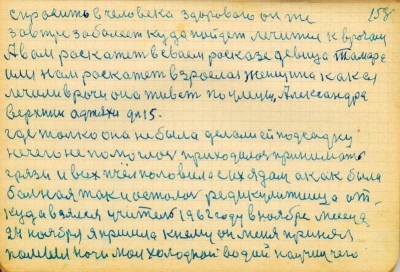 158
справить в человека здорового он же
завтре заболеет куда пойдет лечится к врачам
А вам раскажет в своем расказе девица Тамара
или нам раскажет взрослая женщина как ея
лечили врачи она живет по улицы, Александра
верхник аджяхи дп 15.
где толко она не была делали ей подсадку
нечего не помочлох приходилох принимать
грязи и всех пчел половила с их ядам а как была
болная так и осталох редикулитица от-
куда взялся учитель 1962 году в ноябре месяца
24 ноября я пришла к нему он меня принял
помыл ночи мои холодной водай научил чего